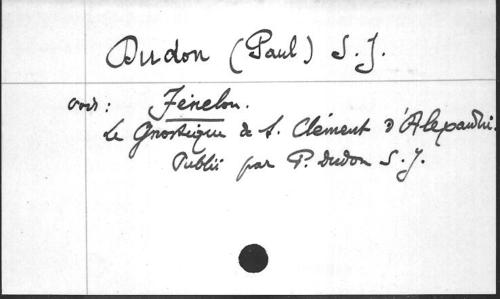 Dudon (Paul) S. J.
voir: Fénelon.
Le Gnostique de S. Clément d'Alexandrie.
Publié par P. Dudon S. J.